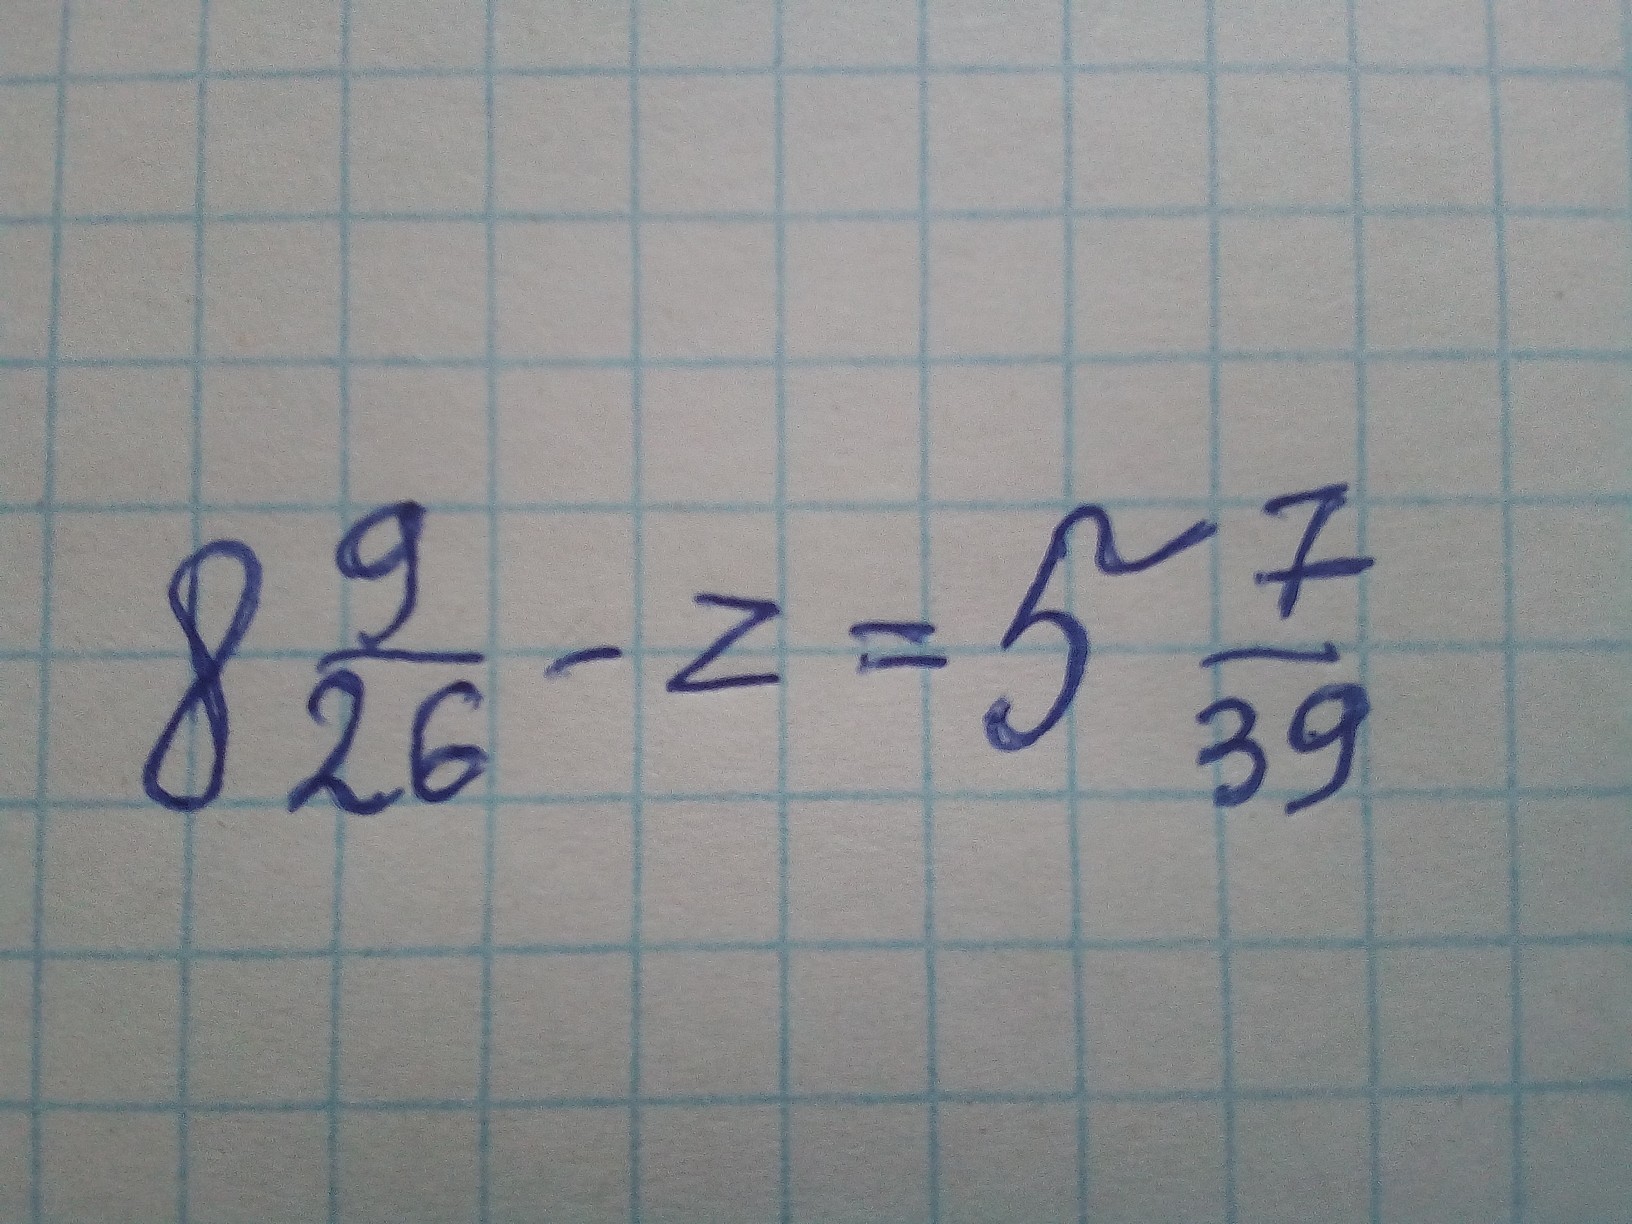 8 9/26 - z = 5 7/39